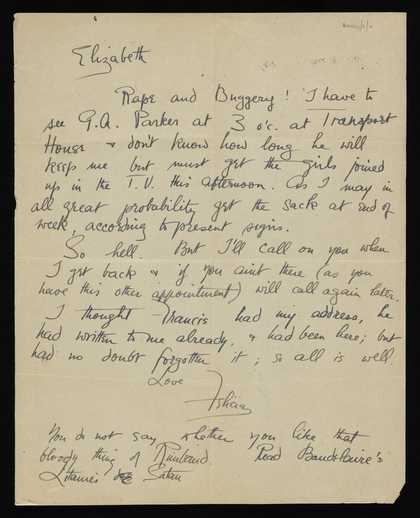 Elizabeth
Rape and Buggery! I have to
see G.A. Parker at 3 o'c. at Transport
House & don't know how long he will
keep me but must get the girls joined
up in the T.U. this afternoon. As I may in
all great probability get the sack at end of
week, according to present signs.
So hell. But I'll call on you when
I get back & if you aint there (as you
have this other appointment) will call again later.
I thought Francis had my address, he
had written to me already, & had been here; but
had no doubt forgotten it; so all is well.
Love
You do not say whether you like that
bloody thing of Rimbaud Read Baudelaire's
Litanies Satan